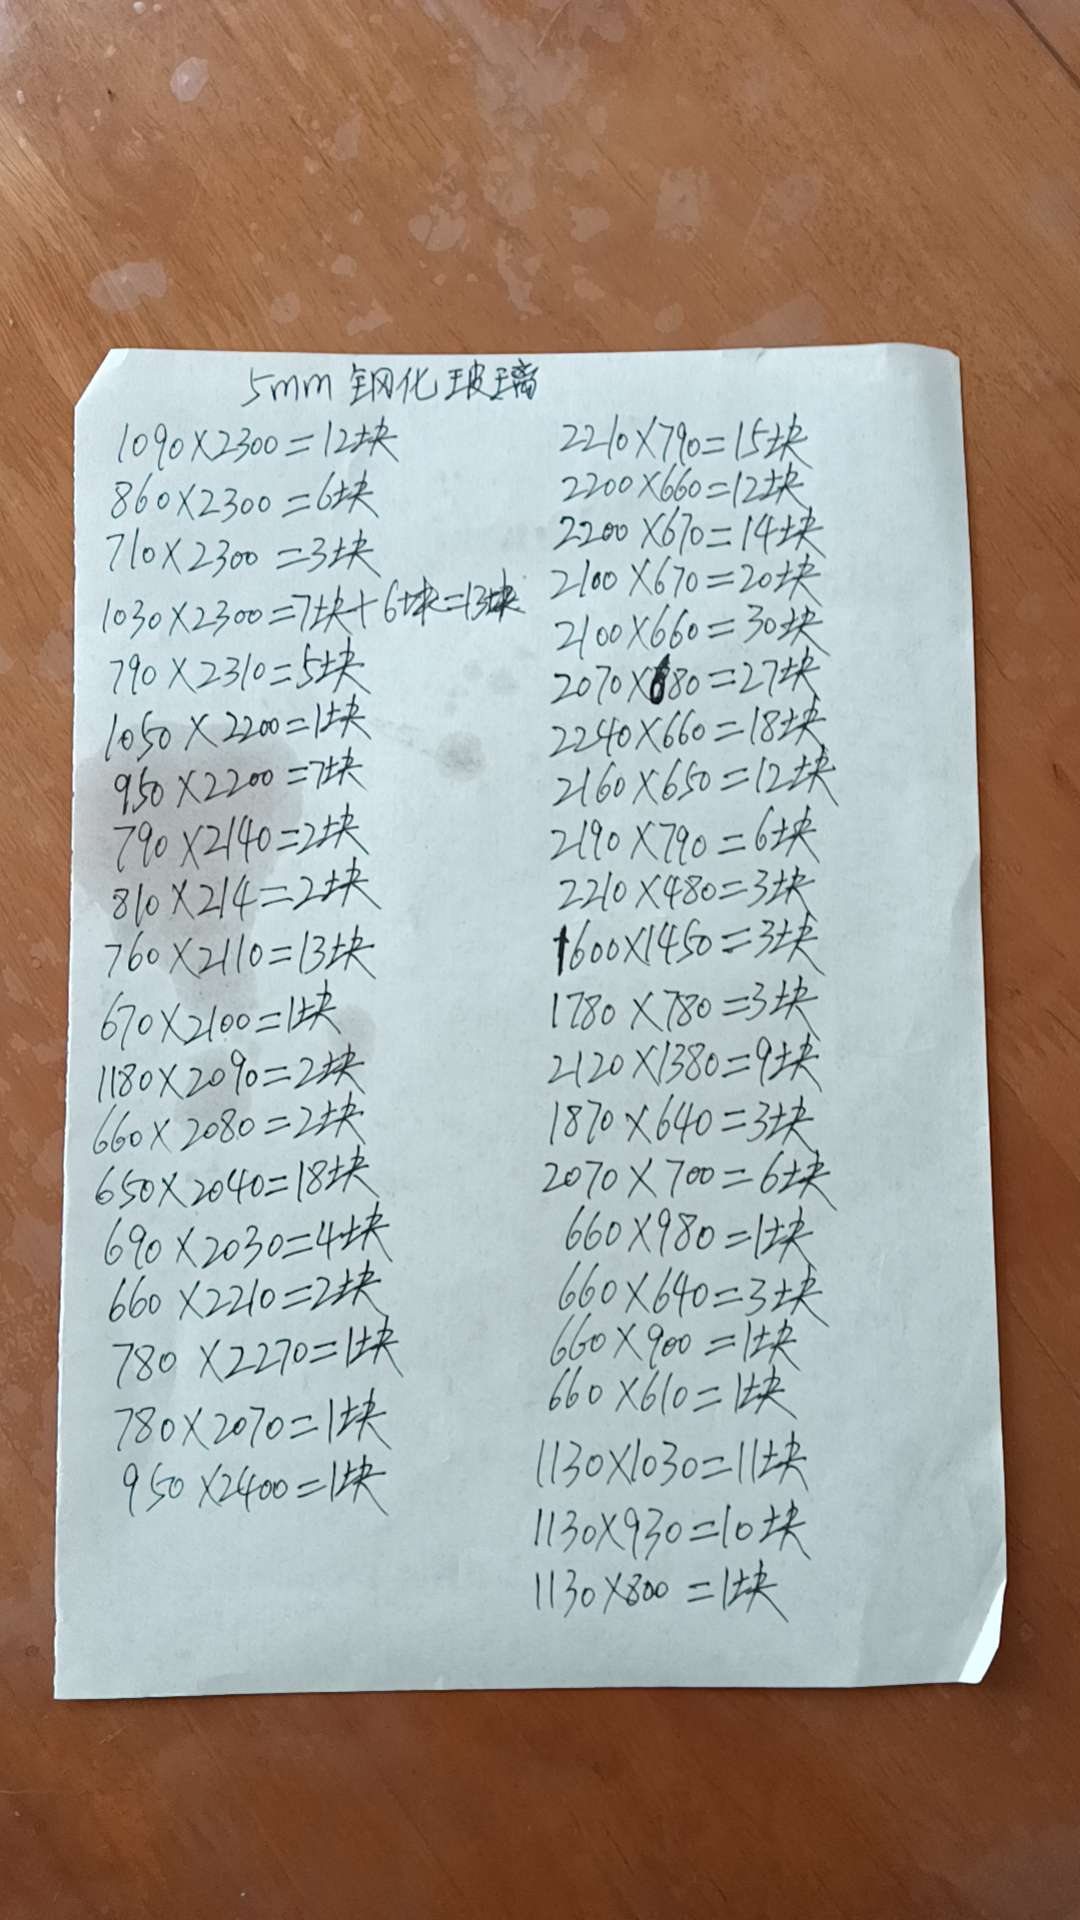 5mm 钢化玻璃
1090×2300=12块
860×2300=6块
710×2300=3块
1030×2300=7块+6块=13块
790×2310=5块
1050×2200=1块
950×2200=7块
790×2140=2块
810×214=2块
760×2110=13块
670×2100=1块
1180×2090=2块
660×2080=2块
650×2040=18块
690×2030=4块
660×2210=2块
780×2270=1块
780×2070=1块
950×2400=1块
2210×790=15块
2200×660=12块
2200×670=14块
2100×670=20块
2100×660=30块
2070×680=27块
2240×660=18块
2160×650=12块
2190×790=6块
2210×480=3块
1600×1450=3块
1780×780=3块
2120×1380=9块
1870×640=3块
2070×700=6块
660×980=1块
660×640=3块
660×900=1块
660×610=1块
1130×1030=11块
1130×930=10块
1130×800=1块